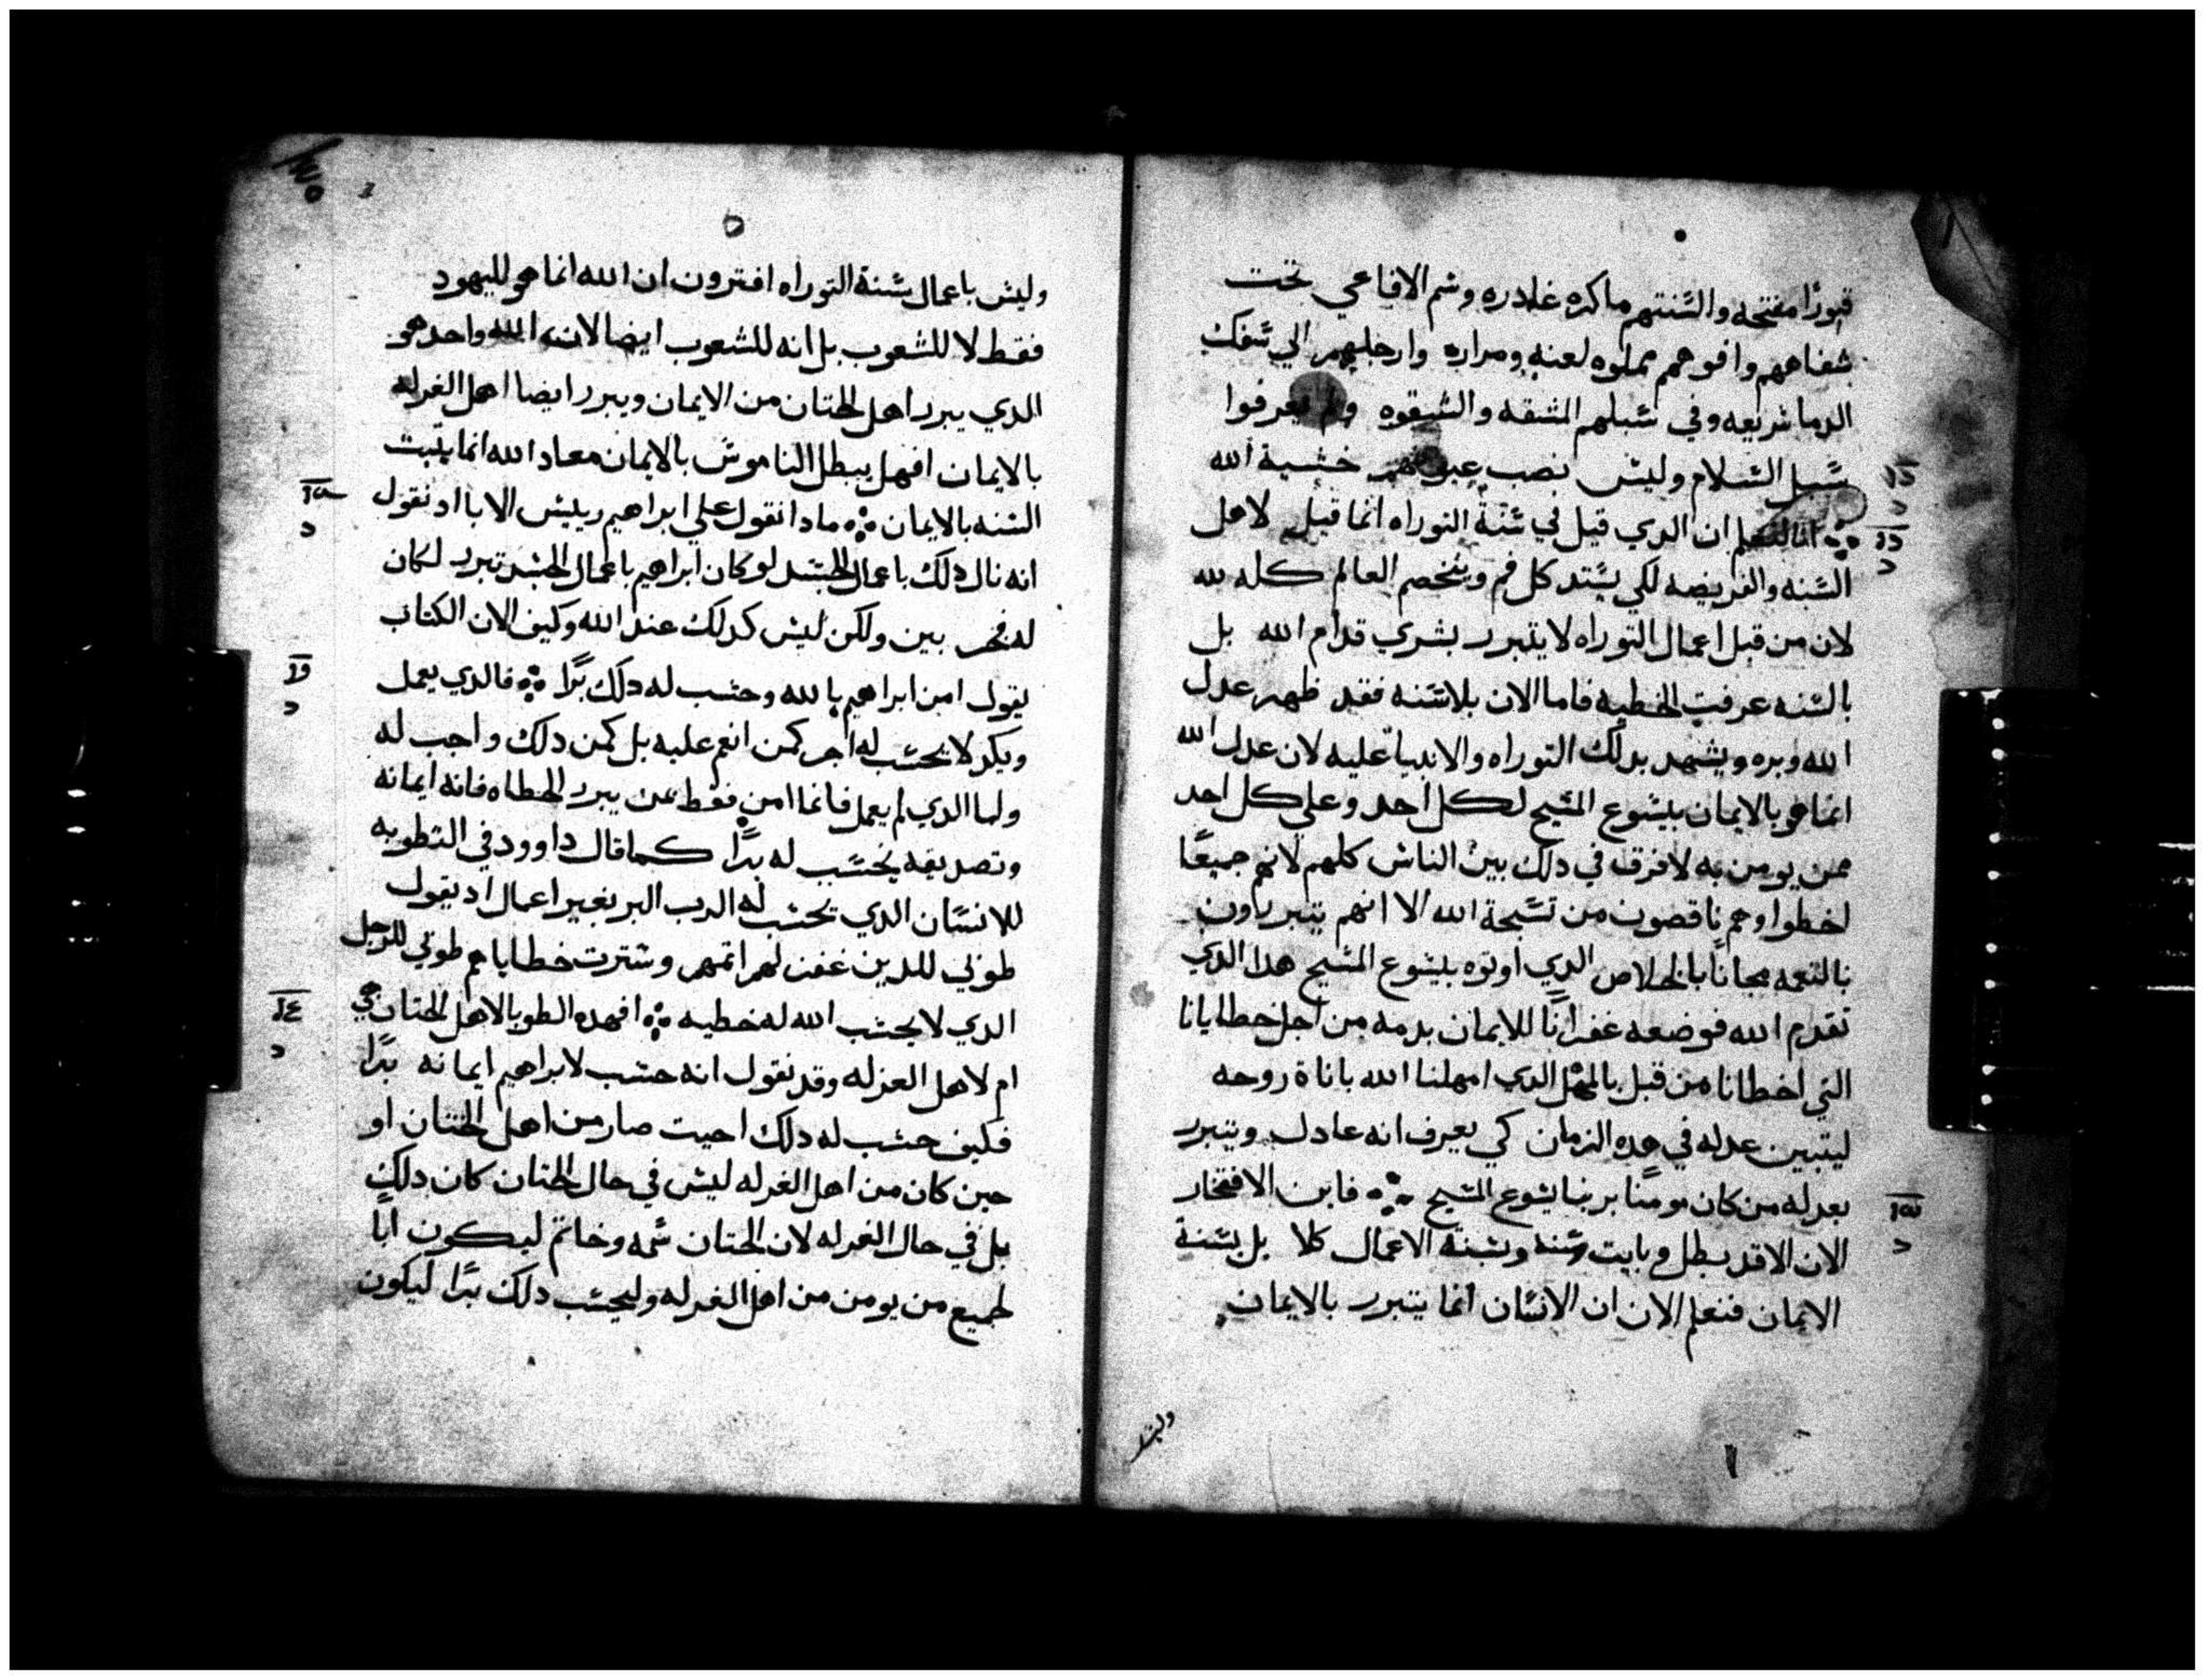 قبورًا مفتحه والسنتهم ماكره غادره وسم الافاعي تحت
شفاههم وافوههم مملوه لعنه ومراره وارجلهم الي سفك
الدما سريعه وفي سبلهم المشقه والشقوه ولم يعرفوا
سبل السلام وليس نصب عيونهم خشية الله
ان الدي قيل في سنة التوراه انما قيل لاهل
السنه والفريضه لكي يستد كل فم ويخصم العالم كله لله
لان من قبل اعمال التوراه لا يتبرر بشري قدام الله بل
بالسنه عرفت الخطيه فاما الان بلا سنه فقد ظهر عدل
الله وبره ويشهد بدلك التوراه والانبيا عليه لان عدل الله
انما هو بالايمان بيسوع المسيح لكل احد وعلي كل احد
ممن يومن به لا فرق في دلك بين الناس كلهم لانهم جميعًا
اخطوا وهم ناقصون من تسبحة الله الا انهم يتبررون
بالنعمه مجانًا بالخلاص الدي اوتوه بيسوع المسيح هدا الدي
تقدم الله فوضعه غفرانًا للايمان بدمه من اجل خطايانا
التي اخطانا من قبل بالمهل الدي امهلنا الله باناة روحه
ليتبين عدله في هده الزمان كي يعرف انه عادل ويتبرر
بعدله من كان مومنًا بربنا يسوع المسيح ܀ فاين الافتخار
الان الاقد بطل وبايت سنه وبسنة الاعمال كلا بل بسنة
الايمان فنعلم الان ان الانسان انما يتبرر بالايمان
وليس
وليس باعمال سنة التوراه افترون ان الله انما هو لليهود
فقط لا للشعوب بل انه للشعوب ايضا لان الله واحد هو
الدي يبرر اهل الختان من الايمان ويبرر ايضا اهل الغرله
بالايمان افهل يبطل الناموس بالايمان معاد الله انما يثبت
السنه بالايمان ܀ مادا نقول علي ابراهيم رييس الابا او نقول
انه نال دلك باعمال الجسد لو كان ابراهيم باعمال الجسد تبرر لكان
له فخر بين ولكن ليس كدلك عند الله وكيف الان الكتاب
يقول امن ابراهيم بالله وحسب له دلك برًا ܀ فالدي يعمل
ويكد لا يحسب له اجر كمن انعم عليه بل كمن دلك واجب له
واما الدي لم يعمل فانما امن فقط بمن يبرر الخطاه فانه ايمانه
وتصديقه يحسب له برًا كما قال داوود في التطوبه
للانسان الدي يحسب له الرب البر بغير اعمال اد يقول
طوبي للدين غفر لهم اتمهم وسترت خطاياهم طوبي للرجل
الدي لا يحسب الله له خطيه ܀ افهده الطوبا لاهل الختان هي
ام لاهل الغرله وقد نقول انه حسب لابراهيم ايمانه برًا
فكيف حسب له دلك احيت صار من اهل الختان او
حين كان من اهل الغرله ليس في حال الختان كان دلك
بل في حال الغرله لان الختان سمه وخاتم ليكون ابًا
لجميع من يومن من اهل الغرله وليحسب دلك برًا ليكون